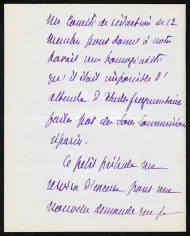 un Comité de rédaction de 12
membres pour donner à notre
travail une homogénéité
qu'il était impossible d'
attendre d'études fragmentaires
faites par des sous-commissions
séparées.
Ce petit préambule me
servira d'excuse pour une
nouvelle demande que je